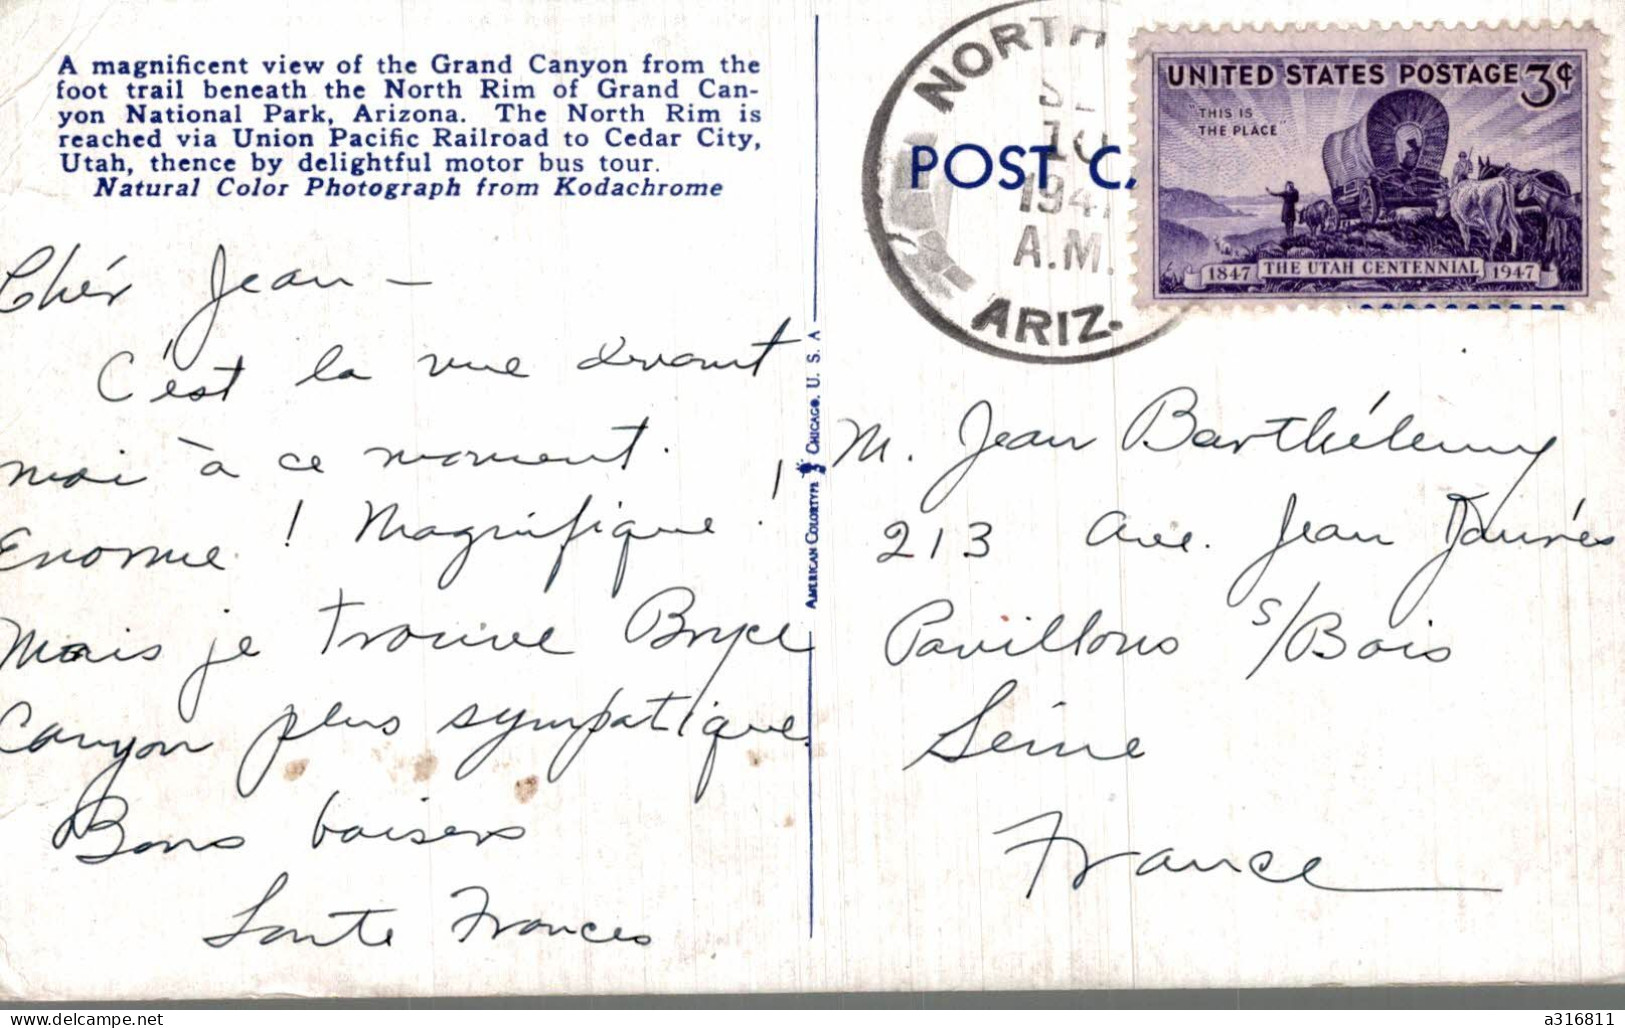 A magnificent view of the Grand Canyon from the
foot trail beneath the North Rim of Grand Can-
yon National Park, Arizona. The North Rim is
reached via Union Pacific Railroad to Cedar City,
Utah, thence by delightful motor bus tour.
Natural Color Photograph from Kodachrome
Chér Jean —
C'est la vue devant
moi à ce moment.
Enorme ! Magnifique !
Mais je trouve Bryce
Canyon plus sympatique.
Bons baisers
Frances
AMERICAN COLORTYPE CHICAGO, U. S. A
NORTH
10
194
A.M.
ARIZ.
POST C
UNITED STATES POSTAGE 3¢
"THIS IS
THE PLACE"
1847 THE UTAH CENTENNIAL 1947
M. Jean Barthélemy
213 Ave. Jean Jaurés
Pavillons s/Bois
Seine
France
delcampe.net
a316811